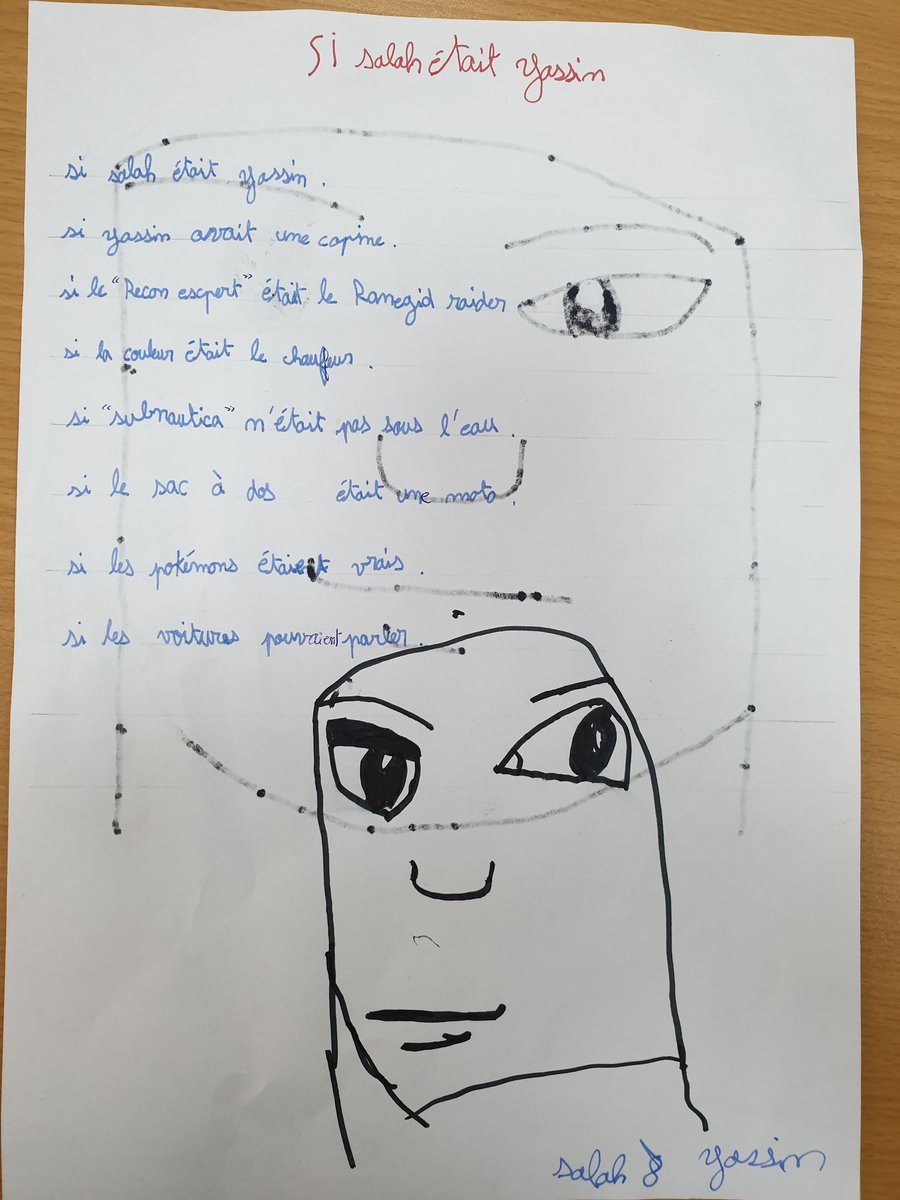 Si salah était Yassin
si salah était Yassin.
si yassin avait une copine.
si le "Recon escpert" était le Ranegid raider
si la couleur était le chauffeur.
si "subnautica" n'était pas sous l'eau.
si le sac à dos était une moto.
si les pokémons étaient vrais.
si les voitures pouvraient parler.
salah & Yassin